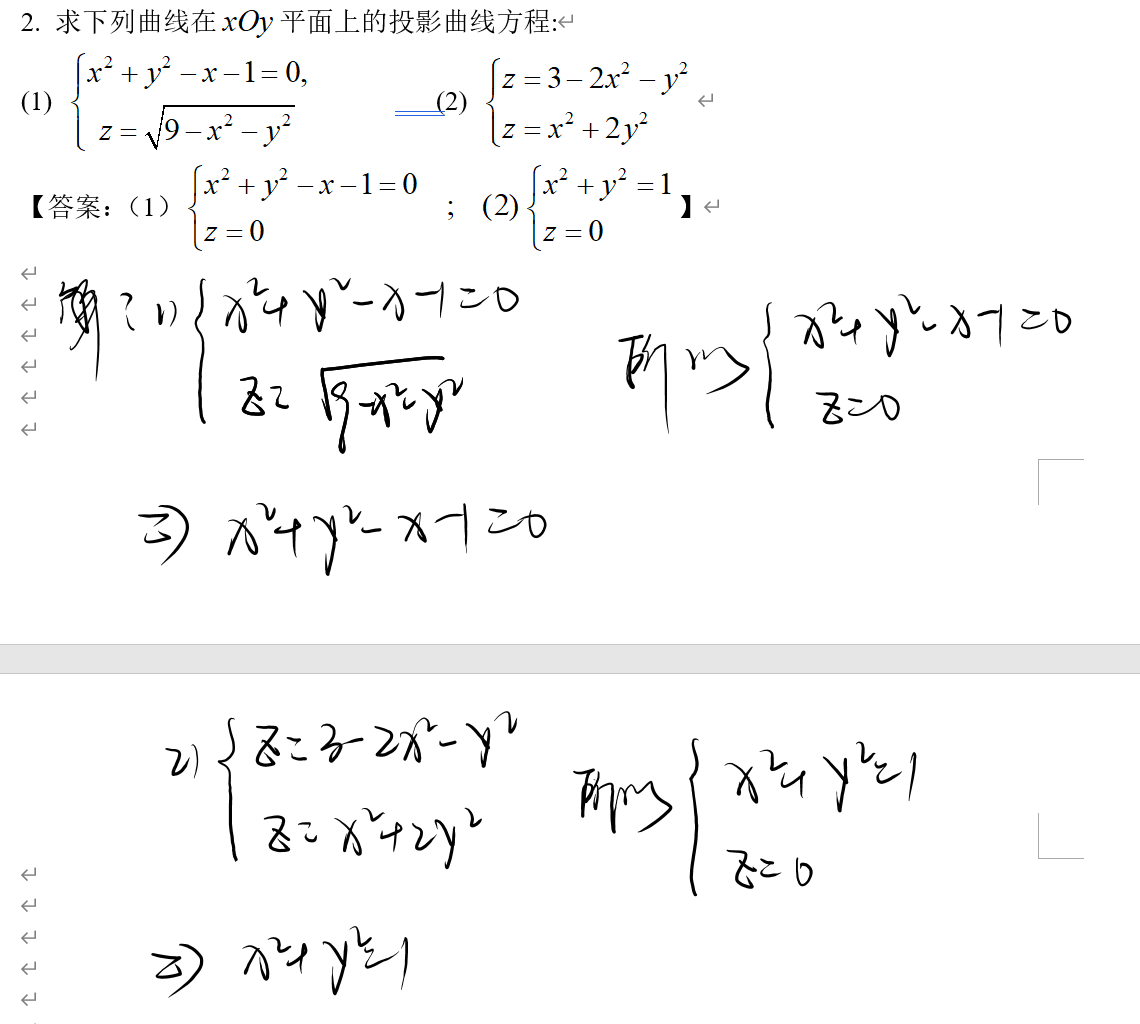 2. 求下列曲线在 xOy 平面上的投影曲线方程:
(1) { x² + y² − x − 1 = 0, z = √(9 − x² − y²) (2) { z = 3 − 2x² − y² z = x² + 2y²
【答案：（1）{ x² + y² − x − 1 = 0 z = 0 ； (2) { x² + y² = 1 z = 0 】
解：1) { x² + y² − x − 1 = 0 z = √(9 − x² − y²) 所以 { x² + y² − x − 1 = 0 z = 0
⇒ x² + y² − x − 1 = 0
2) { z = 3 − 2x² − y² z = x² + 2y² 所以 { x² + y² = 1 z = 0
⇒ x² + y² = 1